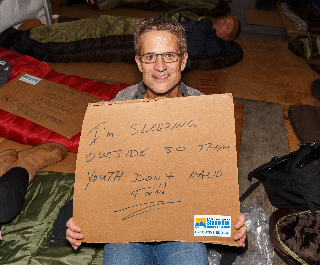 I'm SLEEPING
OUTSIDE SO THAT
YOUTH DON'T HAVE
TO!!